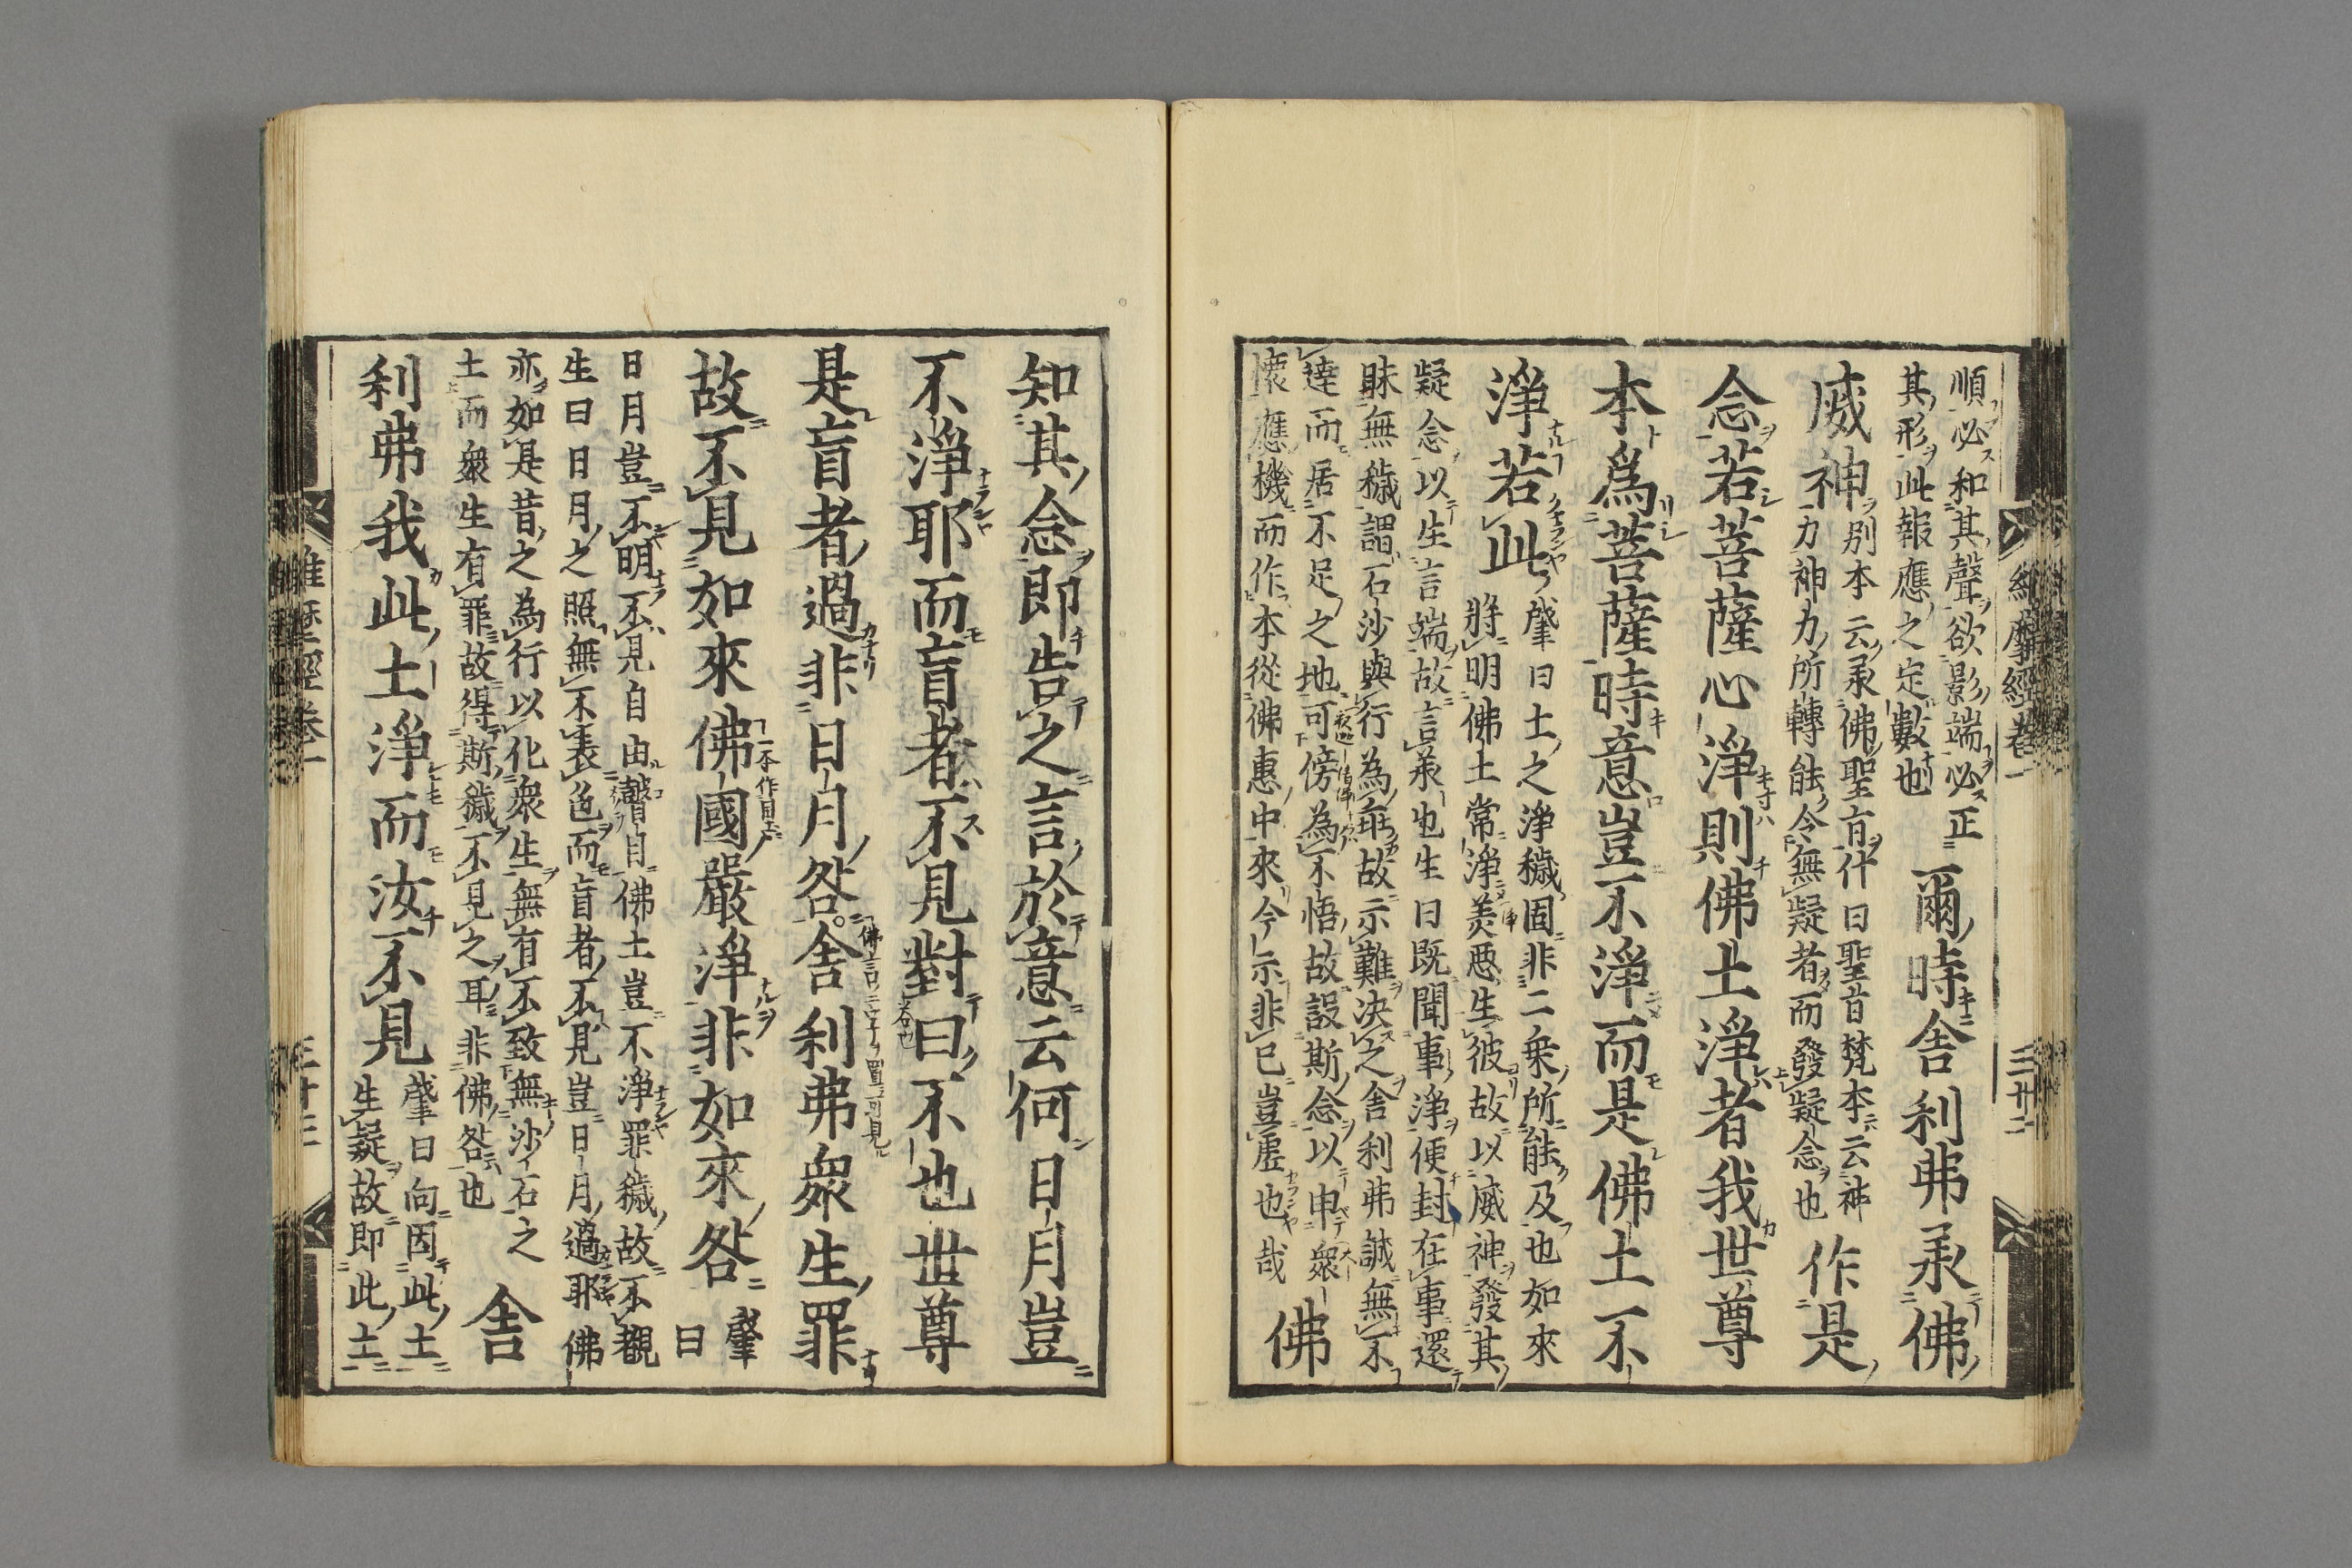 順必和其聲欲影端必正
其形此報應之定數也
爾時舍利弗承佛
威神
別本云承佛聖旨什曰聖旨梵本云神
力神力所轉能令無疑者而發疑念也
作是
念若菩薩心淨則佛土淨者我世尊
本爲菩薩時意豈不淨而是佛土不
淨若此
肇曰土之淨穢固非二乘所能及也如來
將明佛土常淨美惡生彼故以威神發其
疑念以生言端故言承也生曰既聞事淨便封在事還
昧無穢謂石沙與行為乖故示難決之舍利弗誠無不
達而居不足之地可傍為不悟故設斯念以申衆
懷應機而作本從佛惠中來今示非已豈虛也哉
佛
維摩經卷一
三十二
知其念即告之言於意云何日月豈
不淨耶而盲者不見對曰不也世尊
是盲者過非日月咎舍利弗衆生罪
故不見如來佛國嚴淨非如來咎
肇曰
日月豈不明不見自由瞽目佛土豈不淨罪穢故不觀
生曰日月之照無不表色而盲者不見豈日月過耶佛
亦如是昔之為行以化衆生無有不致無沙石之
土而衆生有罪故得斯穢不見之耳非佛咎也
舍
利弗我此土淨而汝不見
肇曰向因此土
生疑故即此土
維摩經卷一
三十三